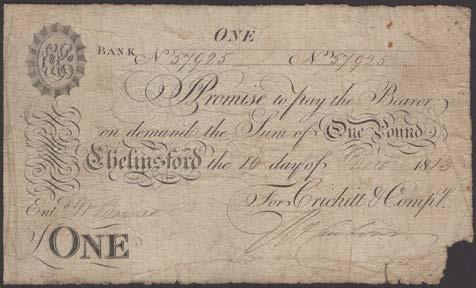 ONE
BANK No 57925 No 57925
I Promise to pay the Bearer
on demand the Sum of One Pound
Chelmsford the 10 day of 1813
For Crickitt & Compy.
Entd
ONE